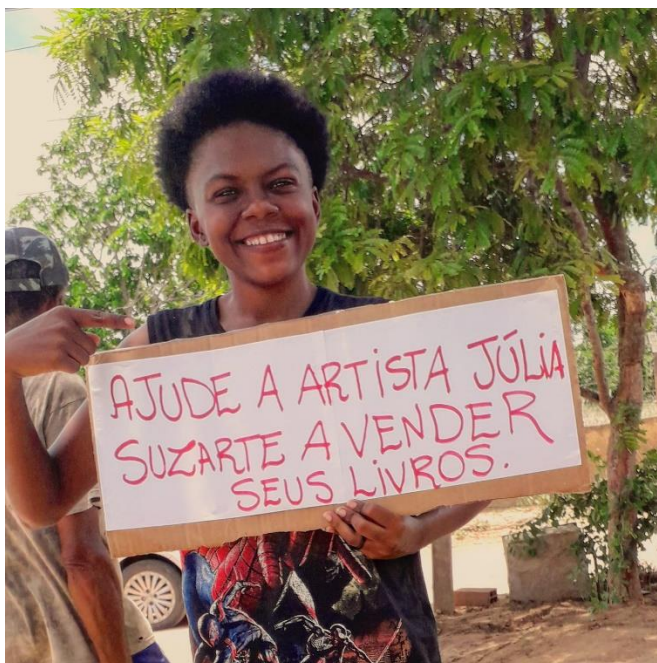 AJUDE A ARTISTA JÚLIA
SUZARTE A VENDER
SEUS LIVROS.